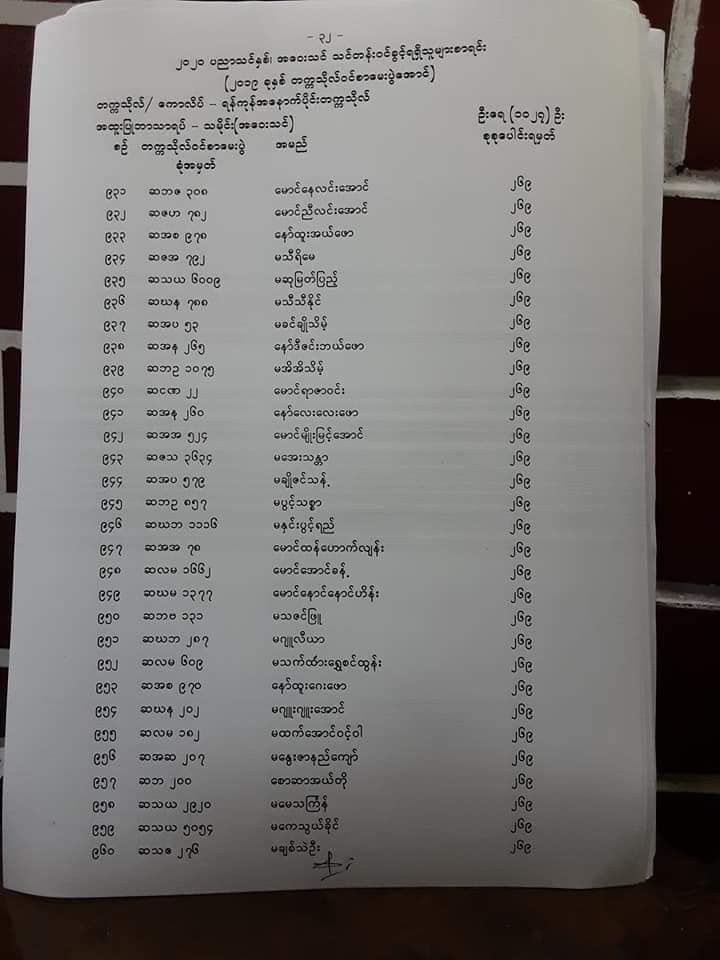 - ၃၂ -
၂၀၂၀ ပညာသင်နှစ်၊ အဝေးသင် သင်တန်းဝင်ခွင့်ရရှိသူများစာရင်း
(၂၀၁၉ ခုနှစ် တက္ကသိုလ်ဝင်စာမေးပွဲအောင်)
တက္ကသိုလ်/ ကောလိပ် – ရန်ကုန်အနောက်ပိုင်းတက္ကသိုလ်
အထူးပြုဘာသာရပ် – သမိုင်း(အဝေးသင်) ဦးရေ (၁၀၂၇) ဦး
စဉ် တက္ကသိုလ်ဝင်စာမေးပွဲ အမည် စုစုပေါင်းရမှတ်
ခုံအမှတ်
၉၃၁ ဆဘဇ ၃၀၈ မောင်နေလင်းအောင် ၂၆၉
၉၃၂ ဆဇဟ ၇၈၂ မောင်ညီလင်းအောင် ၂၆၉
၉၃၃ ဆအစ ၉၇၈ နော်ထူးအယ်ဖော ၂၆၉
၉၃၄ ဆဇအ ၇၉၂ မသီရိမေ ၂၆၉
၉၃၅ ဆသယ ၆၀၀၉ မဆုမြတ်ပြည့် ၂၆၉
၉၃၆ ဆဃန ၇၈၈ မသီသီနိုင် ၂၆၉
၉၃၇ ဆအပ ၅၃ မခင်ချိုသိမ့် ၂၆၉
၉၃၈ ဆအန ၂၆၅ နော်ဒီဇင်းဘယ်ဖော ၂၆၉
၉၃၉ ဆဘဥ ၁၀၇၅ မအိအိသိမ့် ၂၆၉
၉၄၀ ဆငဏ ၂၂ မောင်ရာဇာဝင်း ၂၆၉
၉၄၁ ဆအန ၂၆၀ နော်လေးလေးဖော ၂၆၉
၉၄၂ ဆအအ ၅၂၄ မောင်မျိုးမြင့်အောင် ၂၆၉
၉၄၃ ဆဇသ ၃၆၃၄ မအေးသန္တာ ၂၆၉
၉၄၄ ဆအပ ၅၇၉ မချိုဇင်သန့် ၂၆၉
၉၄၅ ဆဘဥ ၈၅၇ မပွင့်သစ္စာ ၂၆၉
၉၄၆ ဆဃဘ ၁၁၁၆ မနှင်းပွင့်ရည် ၂၆၉
၉၄၇ ဆအအ ၇၈ မောင်ထန်ဟောက်လျန်း ၂၆၉
၉၄၈ ဆလမ ၁၆၆၂ မောင်အောင်ခန့် ၂၆၉
၉၄၉ ဆဃမ ၁၃၇၇ မောင်နောင်နောင်ဟိန်း ၂၆၉
၉၅၀ ဆဘဗ ၁၃၁ မသဇင်ဖြူ ၂၆၉
၉၅၁ ဆဃဘ ၂၈၇ မဂျူလီယာ ၂၆၉
၉၅၂ ဆလမ ၆၀၉ မသက်ထားရွှေစင်ထွန်း ၂၆၉
၉၅၃ ဆအစ ၉၇၀ နော်ထူးဂေးဖော ၂၆၉
၉၅၄ ဆဃန ၂၀၂ မဂျူးဂျူးအောင် ၂၆၉
၉၅၅ ဆလမ ၁၈၂ မထက်အောင်ဝင့်ဝါ ၂၆၉
၉၅၆ ဆအဆ ၂၀၇ မနွေးဇာနည်ကျော် ၂၆၉
၉၅၇ ဆဘ ၂၀၀ စောဆာအယ်တို ၂၆၉
၉၅၈ ဆသယ ၂၉၂၀ မမေသင်္ကြန် ၂၆၉
၉၅၉ ဆသယ ၅၀၅၄ မကေသွယ်ခိုင် ၂၆၉
၉၆၀ ဆသဇ ၂၇၆ မချစ်သဲဦး ၂၆၉